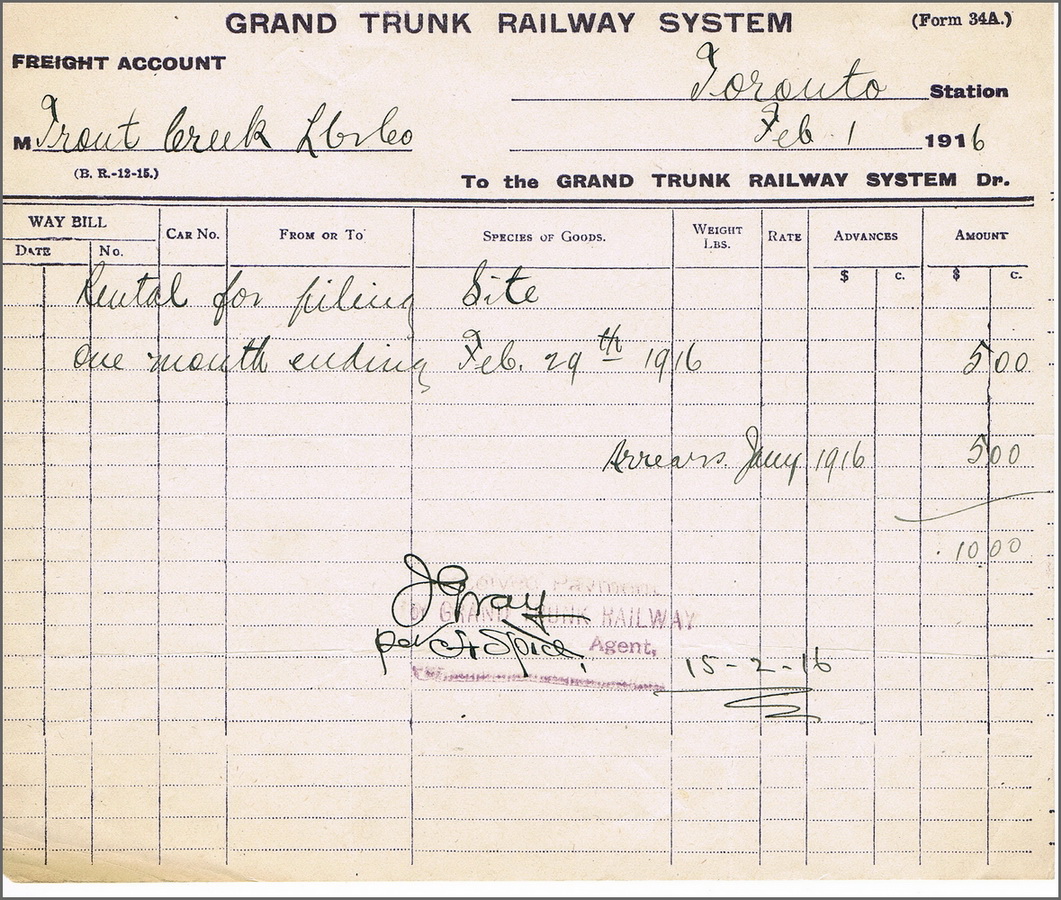 GRAND TRUNK RAILWAY SYSTEM (Form 34A.)
FREIGHT ACCOUNT
Toronto Station
M Trout Creek Lbr Co Feb 1 1916
(B. R.-12-15.)
To the GRAND TRUNK RAILWAY SYSTEM Dr.
WAY BILL CAR No. FROM OR TO SPECIES OF GOODS. WEIGHT LBS. RATE ADVANCES AMOUNT
DATE No.
$ c. $ c.
Rental for piling Site
one month ending Feb. 29th 1916 5 00
Arrears. Jany 1916 5 00
10.00
Payment
GRAND TRUNK RAILWAY
J Gray
per Agent,
15-2-16